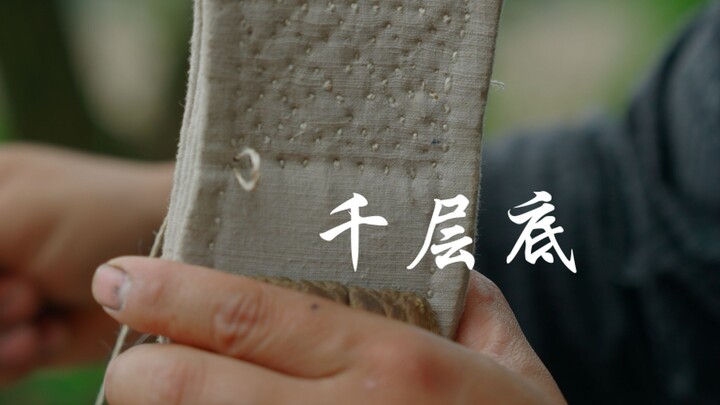 千层底